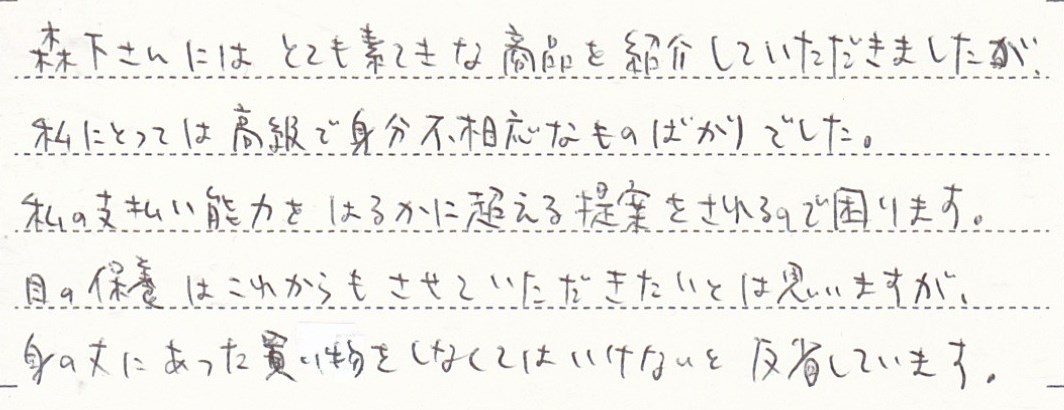 森下さんにはとても素てきな商品を紹介していただきましたが、
私にとっては高級で身分不相応なものばかりでした。
私の支払い能力をはるかに超える提案をされるので困ります。
目の保養はこれからもさせていただきたいとは思いますが、
身の丈にあった買い物をしなくてはいけないと反省しています。